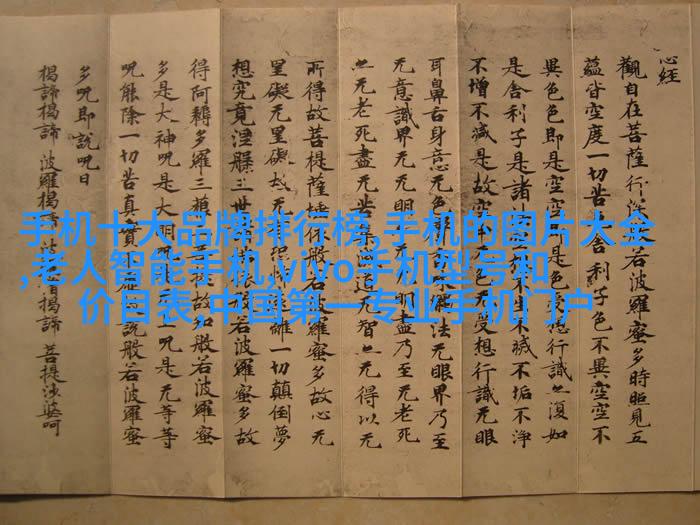 心経
觀自在菩薩行深若波羅蜜多時照見五
蘊皆空度一切苦舍利子色不異空空不
異色色即是空空是色想行識亦復如
是舍利子是諸不生不滅不垢不淨
不增不減是故空无色无受想行識无眼
耳鼻舌身意无色法无眼界乃至
无意識界无无明无明盡乃至无老死
亦无老死盡无苦集道无智亦无得以无
所得故菩提薩埵依般若波羅蜜多故心无
罣礙无罣礙故无恐怖離一切顛倒夢
想究竟涅槃三世依般若波羅蜜多故
得阿耨多羅三提故知般若波羅蜜
多是大神呪是大明呪上呪是无等等
呪能除一切苦真實虛說般若波羅蜜
多呪即說呪曰
揭諦揭諦 波羅揭波揭諦 菩提薩婆呵
手机十大品牌排行榜,手机的图片大全
,老人智能手机,vivo手机型号和
价目表,中国第一专业手机门户